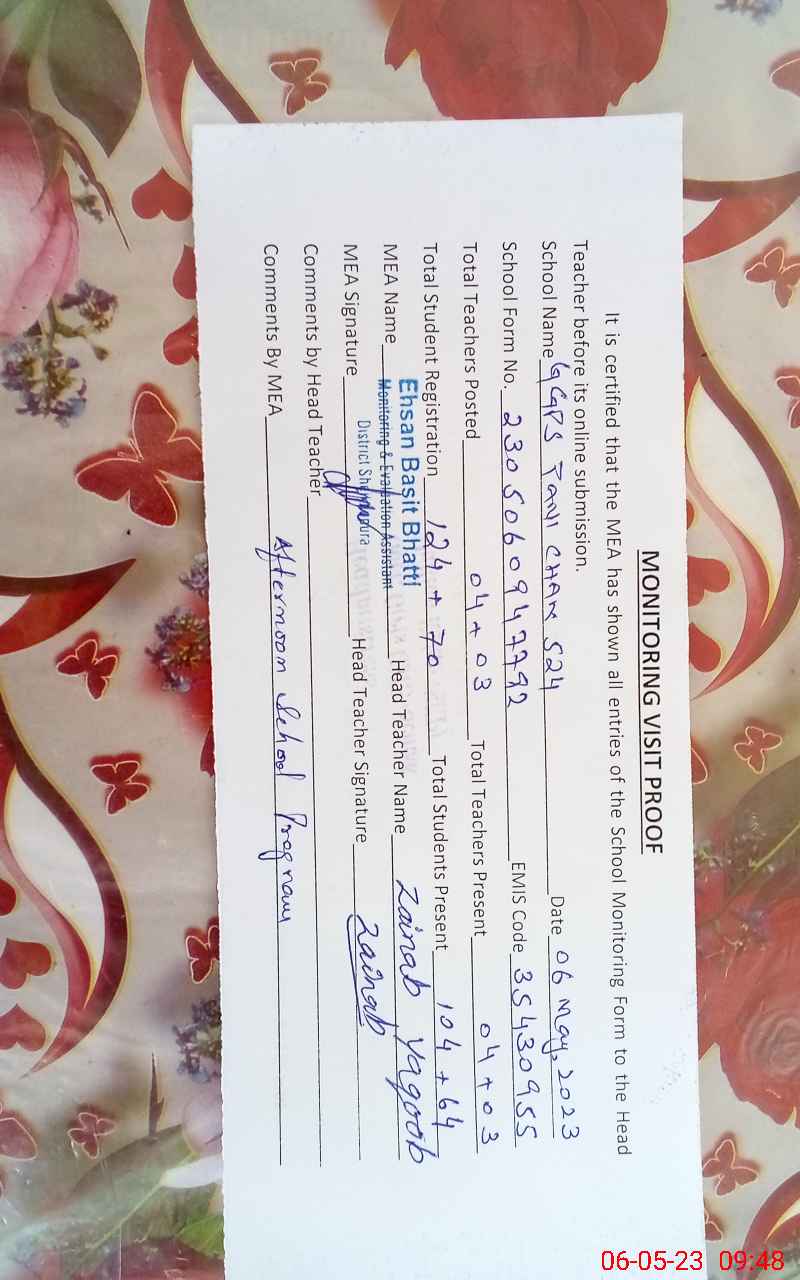 MONITORING VISIT PROOF
It is certified that the MEA has shown all entries of the School Monitoring Form to the Head
Teacher before its online submission.
School Name GGPS 524 Date 06 May, 2023
School Form No. 2305060947792 EMIS Code 35430955
Total Teachers Posted 04 + 03 Total Teachers Present 04 + 03
Total Student Registration 124 + 70 Total Students Present 104 + 64
Ehsan Basit Bhatti
MEA Name Head Teacher Name Zainab Yaqoob
Monitoring & Evaluation Assistant
District
MEA Signature Head Teacher Signature Zainab
Comments by Head Teacher
Comments By MEA Afternoon School Program
06-05-23 09:48